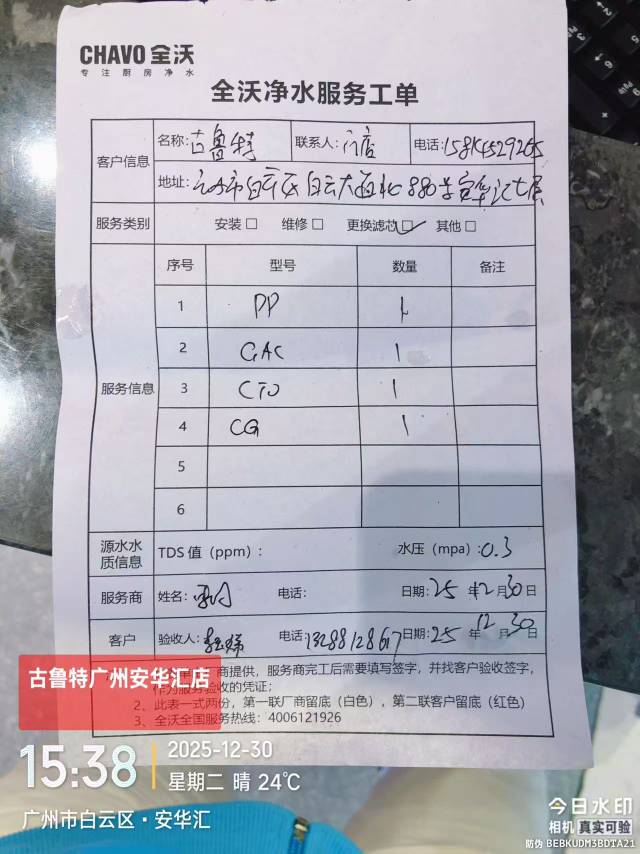 CHAVO 全沃
专注厨房净水
全沃净水服务工单
客户信息
名称: 古鲁特 联系人: 门店 电话:
地址: 广州市白云区白云大道北880号安华汇七层
服务类别 安装□ 维修□ 更换滤芯☑ 其他□
服务信息
序号 型号 数量 备注
1 PP 1
2 GAC 1
3 CTO 1
4 CG 1
5
6
源水水质信息 TDS 值（ppm）： 水压（mpa）:0.3
服务商 姓名: 电话: 日期: 25 年 12 月 30 日
客户 验收人: 电话: 13288128617 日期: 25 年 12 月 30 日
商提供，服务商完工后需要填写签字，并找客户验收签字，
作为服务验收的凭证；
2、此表一式两份，第一联厂商留底（白色），第二联客户留底（红色）
3、全沃全国服务热线：4006121926
古鲁特广州安华汇店
15:38
2025-12-30
星期二 晴 24℃
广州市白云区·安华汇
今日水印
相机 真实可验
防伪 BEBKUDM3BDTA21